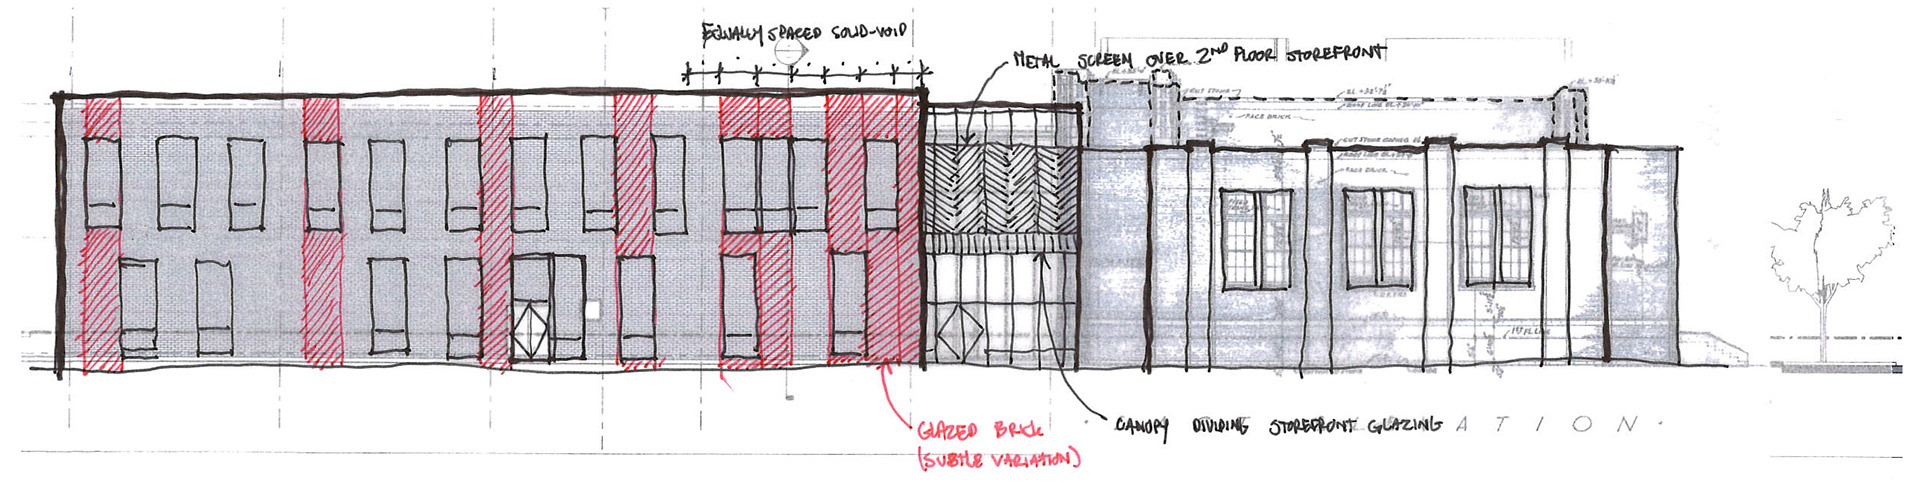 EQUALLY SPACED SOLID-VOID
METAL SCREEN OVER 2ND FLOOR STOREFRONT
CUT STONE
EL +32'-7½"
FACE BRICK
CUT STONE COPING
FACE BRICK
GLAZED BRICK
(SUBTLE VARIATION)
CANOPY DIVIDING STOREFRONT GLAZING
ATION